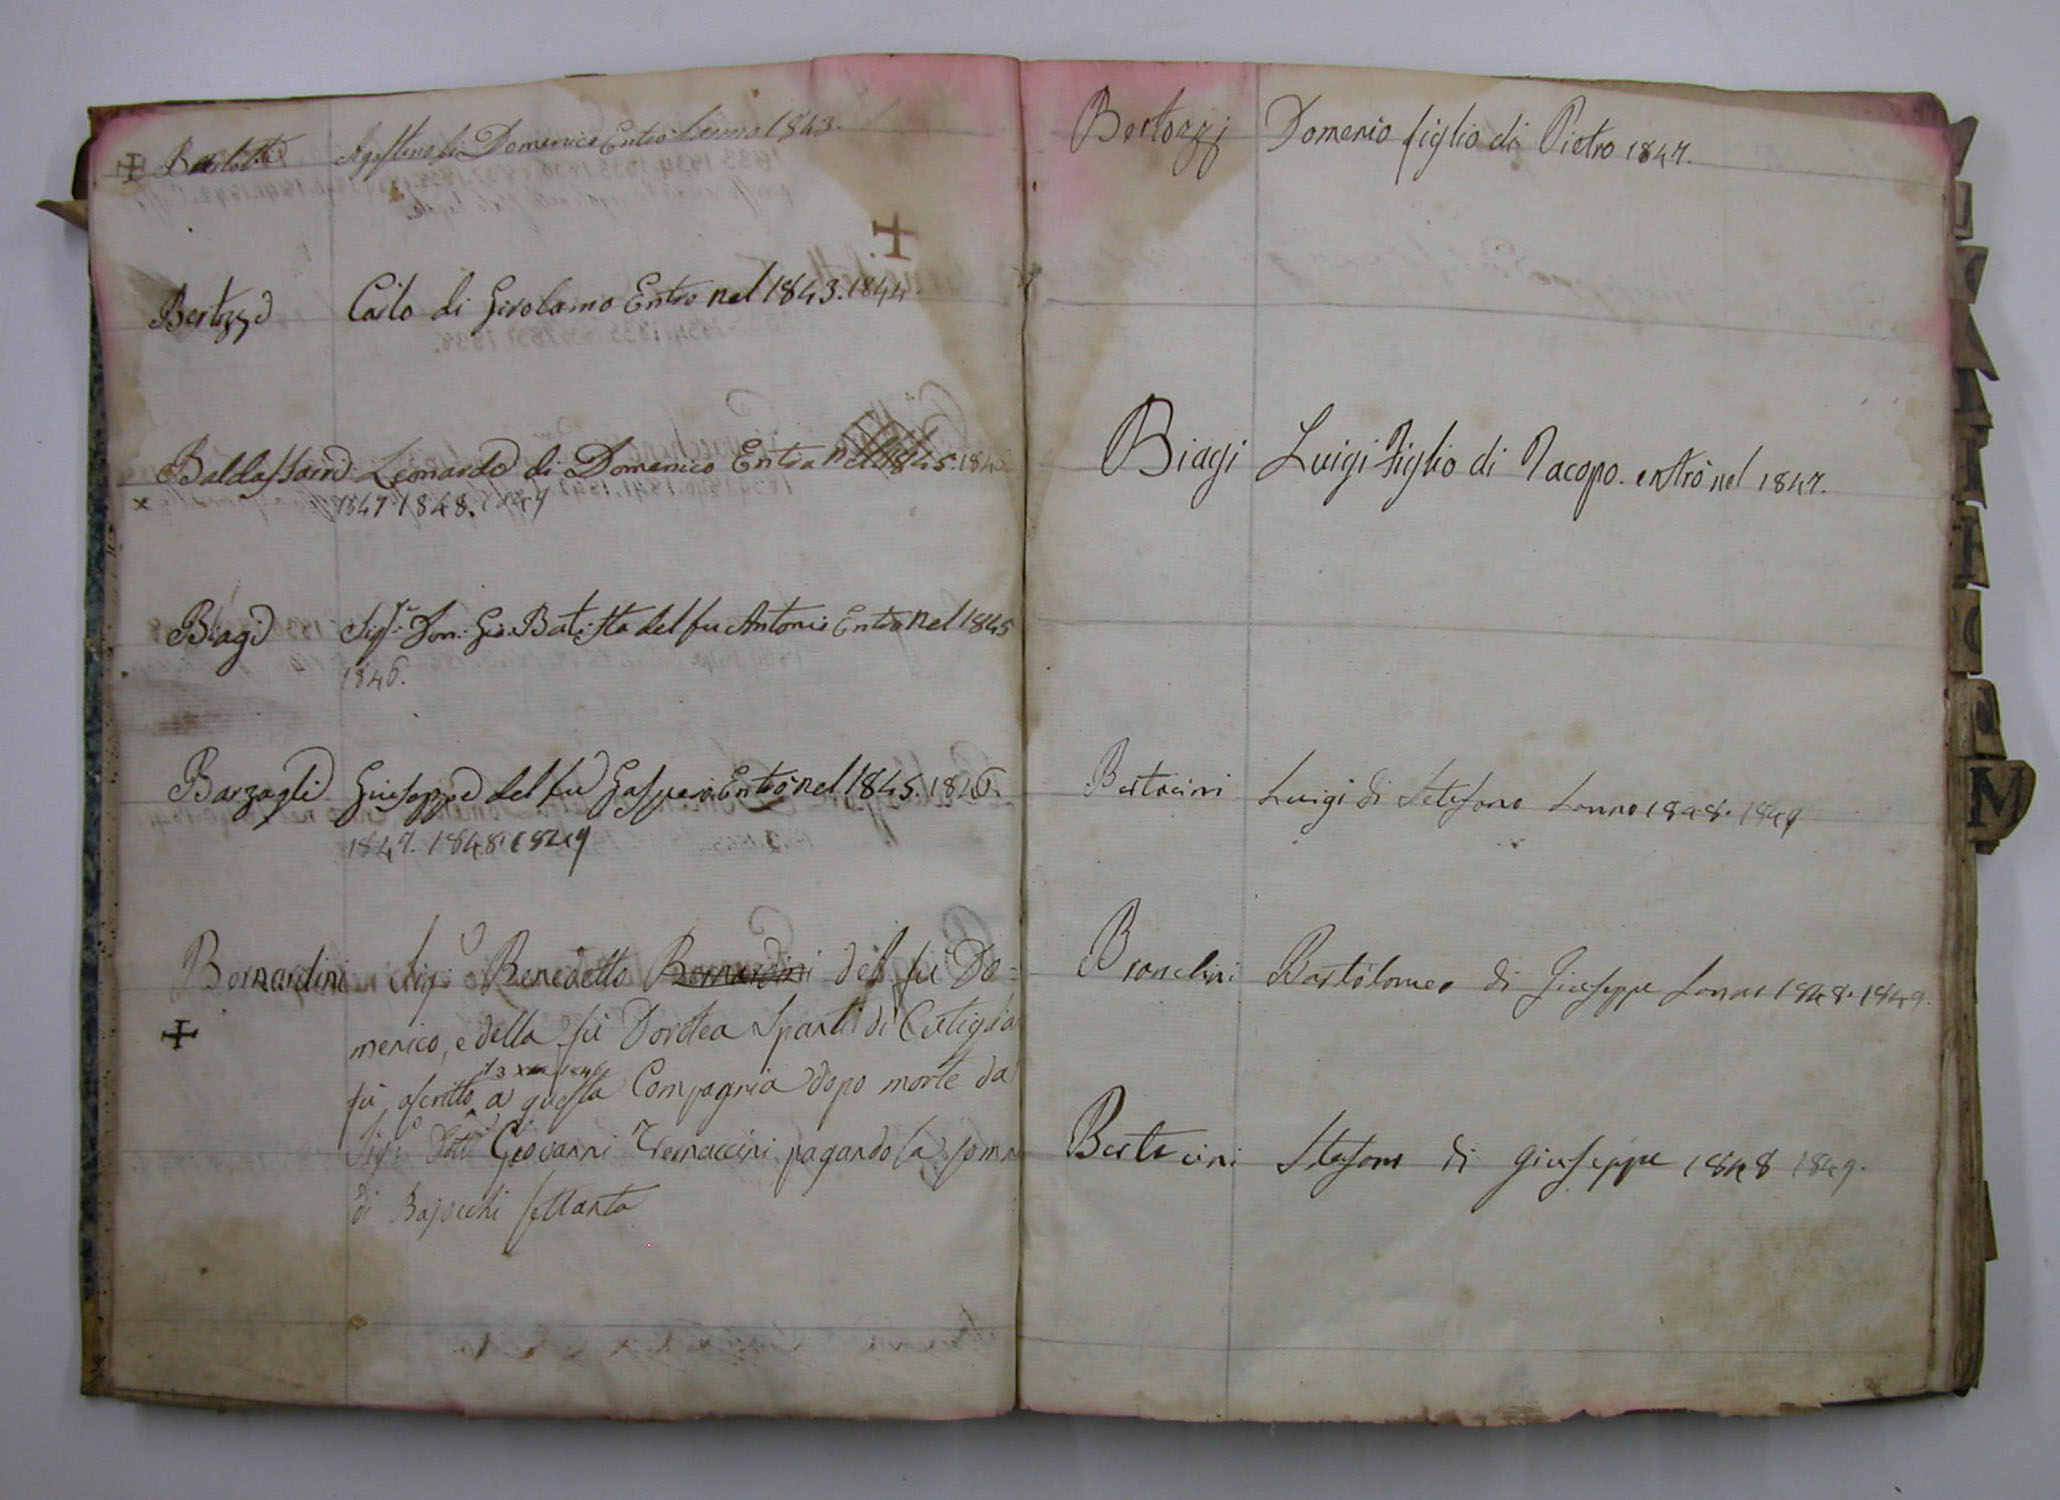 Agostino di Domenico Entrò l'anno 1843.
Bertozzi Carlo di Girolamo Entrò nel 1843. 1844.
Baldassarri Leonardo di Domenico Entrò nel 1845. 184
1847. 1848. 1849
Biagi Sigr. Don. Gio. Batista del fu Antonio Entrò nel 1845
1846.
Barzagli Giuseppe del fu Gasparo Entrò nel 1845. 1846.
1847. 1848. 1849
Bernardini Sigr. Benedetto Bernardini del fù Do=
menico, e della fù Dorotea Sparti di
fù ascritto a questa Compagnia dopo morte dal
Sigr. Dott. Giovanni Vernaccini pagando la somma
di Bajocchi settanta
Bertozzi Domenio figlio di Pietro 1847.
Biagi Luigi Figlio di Jacopo. entrò nel 1847.
Bertacini Luigi di Stefano Lanno 1848. 1849
Bartolomeo di Giuseppe Lanno 1848. 1849.
Bertacini Stefano di Giuseppe 1848 1849.
M